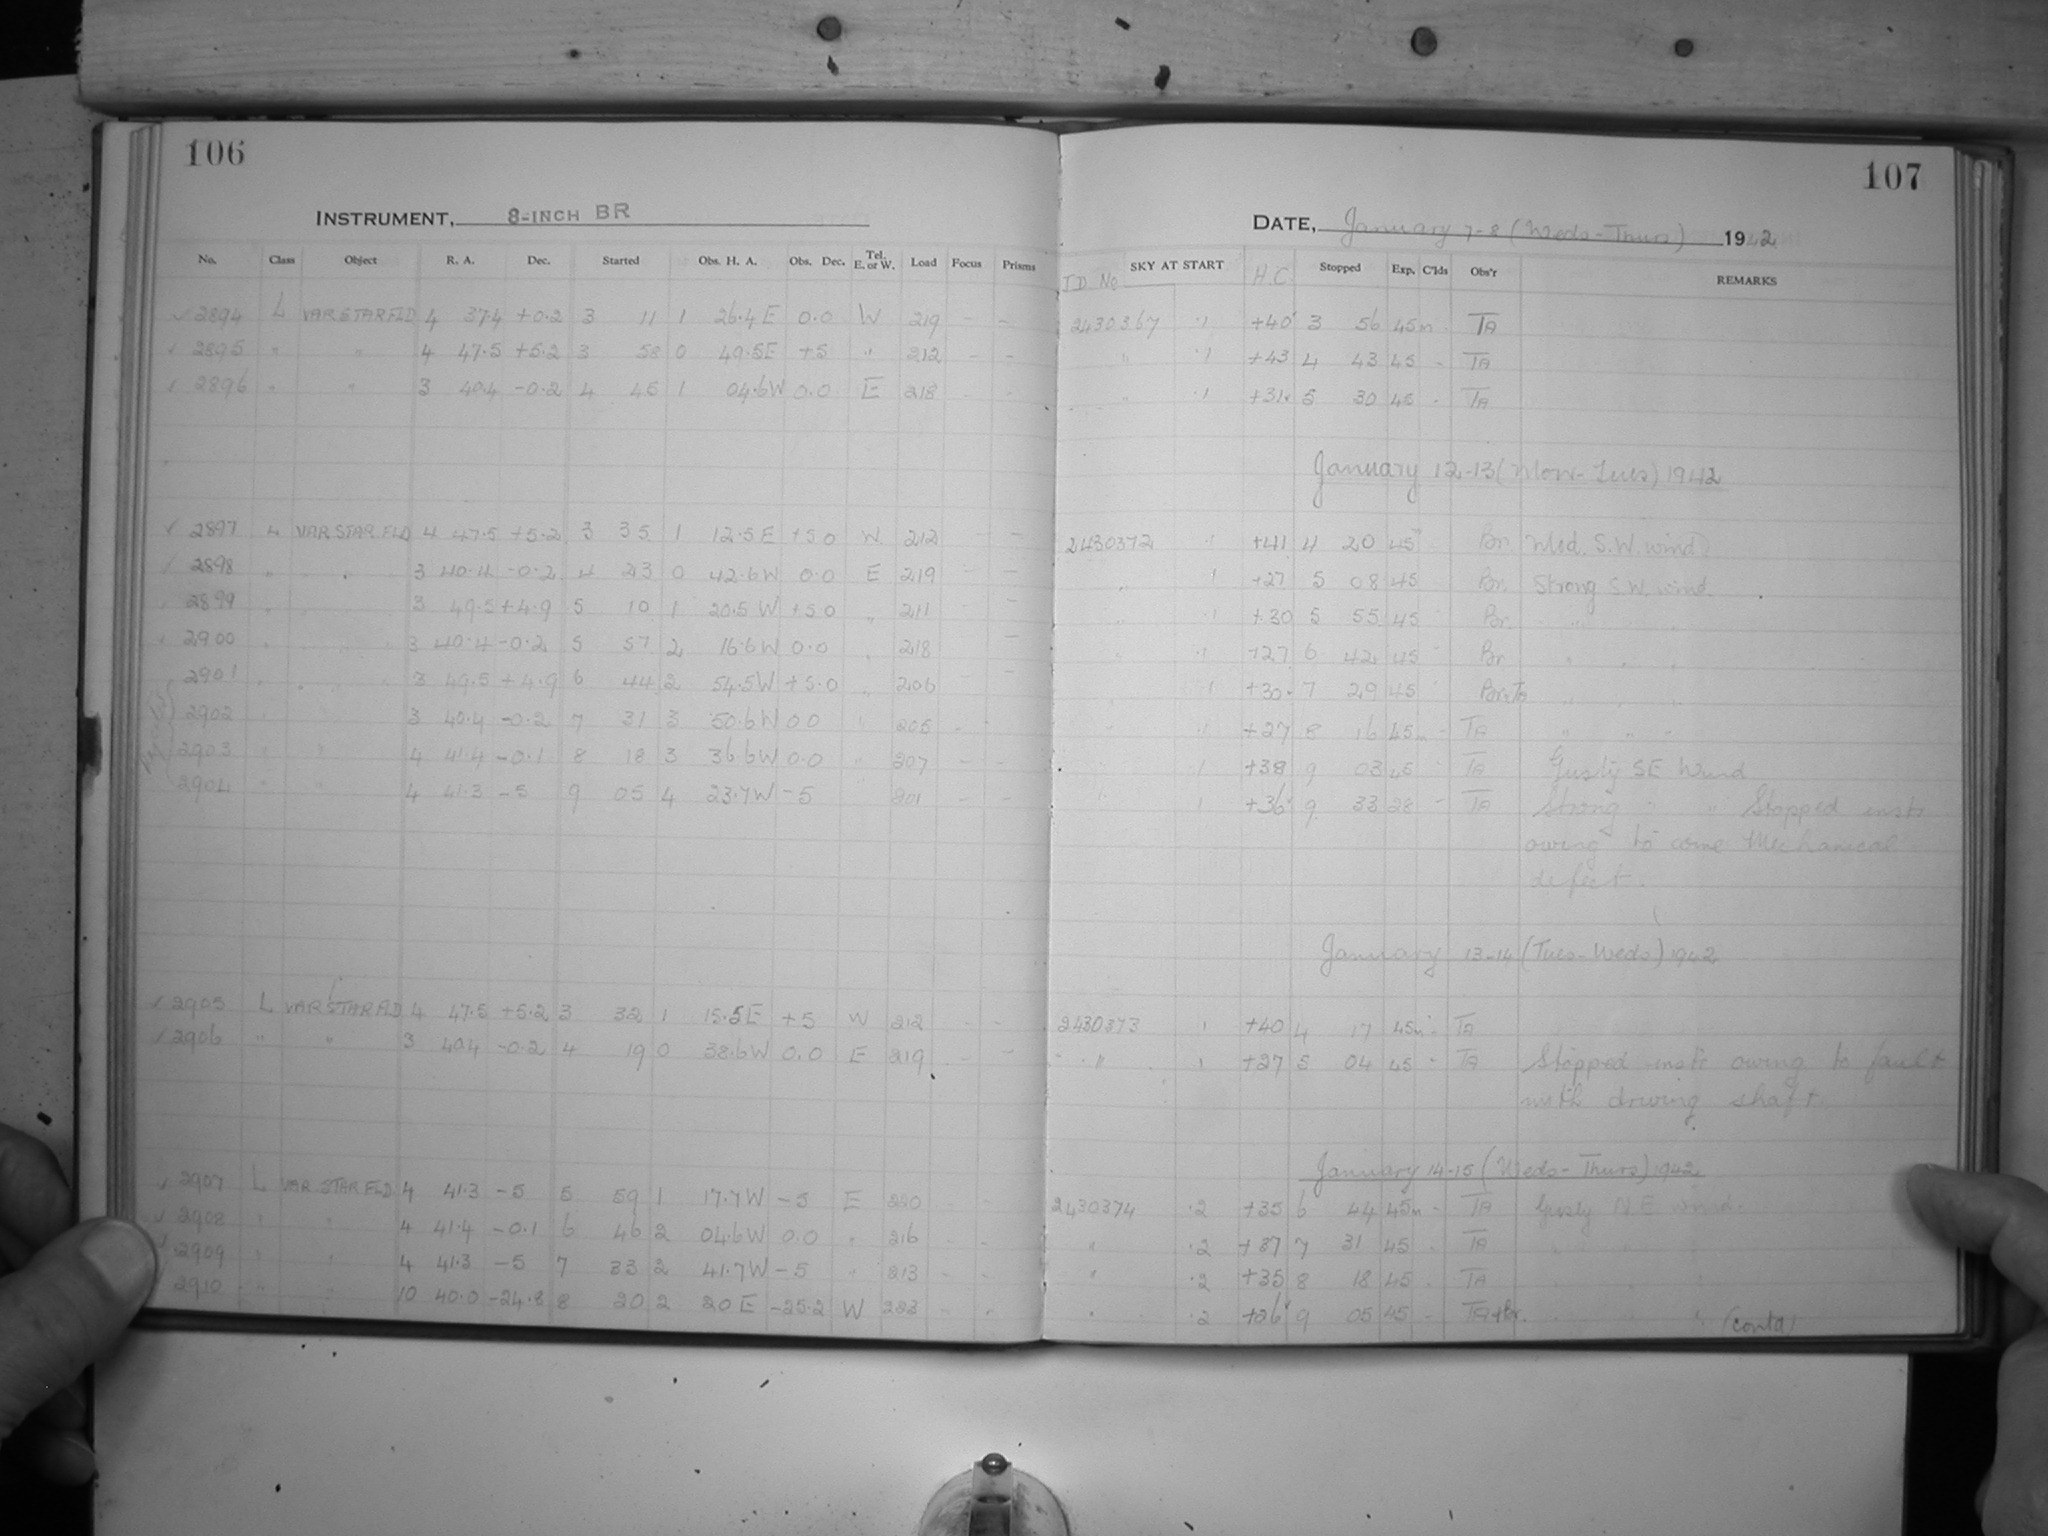 106
107
INSTRUMENT, 8-INCH BR
DATE, January 7-8 (Weds-Thurs) 1942
No. Class Object R. A. Dec. Started Obs. H. A. Obs. Dec. Tel. E. or W. Load Focus Prisms J D No SKY AT START H.C. Stopped Exp. C'lds Obs'r REMARKS
2894 L VAR STAR FLD 4 37.4 +0.2 3 11 1 26.4 E 0.0 W 219 - - 2430367 .1 +40 3 56 45m - TA
2895 " " 4 47.5 +5.2 3 58 0 49.5E +5 " 212 - - " .1 +43 4 43 45 - TA
2896 " " 3 40.4 -0.2 4 45 1 04.6W 0.0 E 218 - - " .1 +31 5 30 45 - TA
January 12-13 (Mon-Tues) 1942
2897 L VAR.STAR.FLD 4 47.5 +5.2 3 35 1 12.5 E +5.0 W 212 - - 2430372 .1 +41 4 20 45 Br. Mod. S.W. wind
2898 " " 3 40.4 -0.2 4 23 0 42.6W 0.0 E 219 - - " .1 +27 5 08 45 Br. Strong S.W. wind
2899 " 3 49.5 +4.9 5 10 1 20.5 W +5.0 " 211 - - " .1 +30 5 55 45 Br. " "
2900 " 3 40.4 -0.2 5 57 2 16.6W 0.0 " 218 - " .1 +27 6 42 45 Br " " "
2901 " " 3 49.5 +4.9 6 44 2 54.5W +5.0 " 206 - .1 +30 7 29 45 Br+TA " " "
2902 3 40.4 -0.2 7 31 3 50.6W 0.0 " 205 - - .1 +27 8 16 45m - TA " " "
2903 " " 4 41.4 -0.1 8 18 3 36.6W 0.0 " 207 - - .1 +38 9 03 45 TA Gusty SE Wind
2904 " " 4 41.3 -5 9 05 4 23.7W -5 201 - - .1 +36 9 33 28 - TA Strong " " Stopped instr
owing to some Mechanical
defect.
January 13-14 (Tues-Weds) 1942
2905 L VAR STAR FLD 4 47.5 +5.2 3 32 1 15.5E +5 W 212 - - 2430373 .1 +40 4 17 45m - TA
2906 " " 3 40.4 -0.2 4 19 0 38.6W 0.0 E 219 - - " .1 +27 5 04 45 - TA Stopped instr owing to fault
with driving shaft.
January 14-15 (Weds-Thurs) 1942
2907 L VAR STAR FLD. 4 41.3 -5 5 59 1 17.7W -5 E 220 - - 2430374 .2 +35 6 44 45m - TA Gusty N.E wind.
2908 " " 4 41.4 -0.1 6 46 2 04.6W 0.0 " 216 - - " .2 +37 7 31 45 - TA " "
2909 " " 4 41.3 -5 7 33 2 41.7W -5 " 213 - - " .2 +35 8 18 45 - TA " "
2910 " " 10 40.0 -24.8 8 20 2 20 E -25.2 W 223 - - " .2 +26 9 05 45 - TA+Br. " " " (contd)